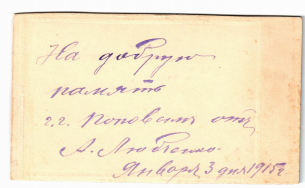 На добрую
память
г.г. Поповымъ отъ
А. Любченко.
Января 3 дня 1915 г.